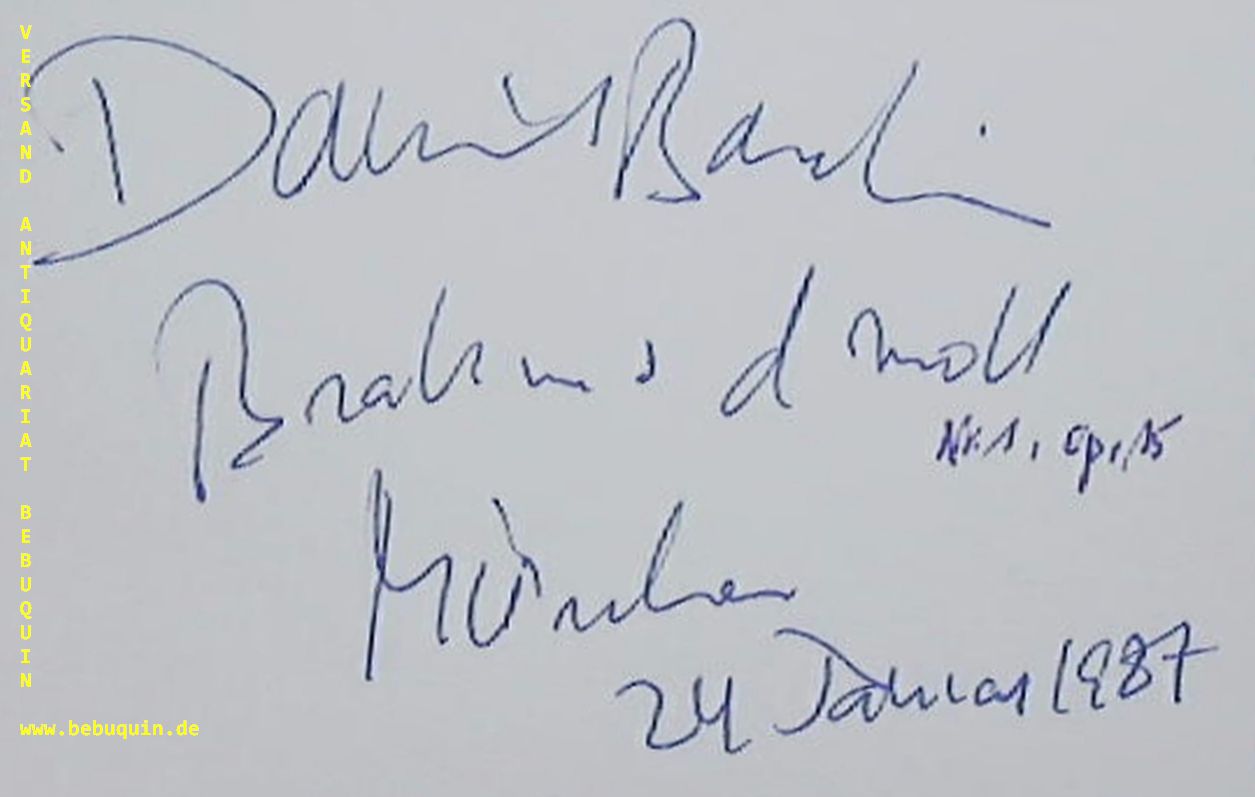 Brahms d moll
Nr. 1, op. 15
München
24 Januar 1987
VERSAND ANTIQUARIAT BEBUQUIN
www.bebuquin.de